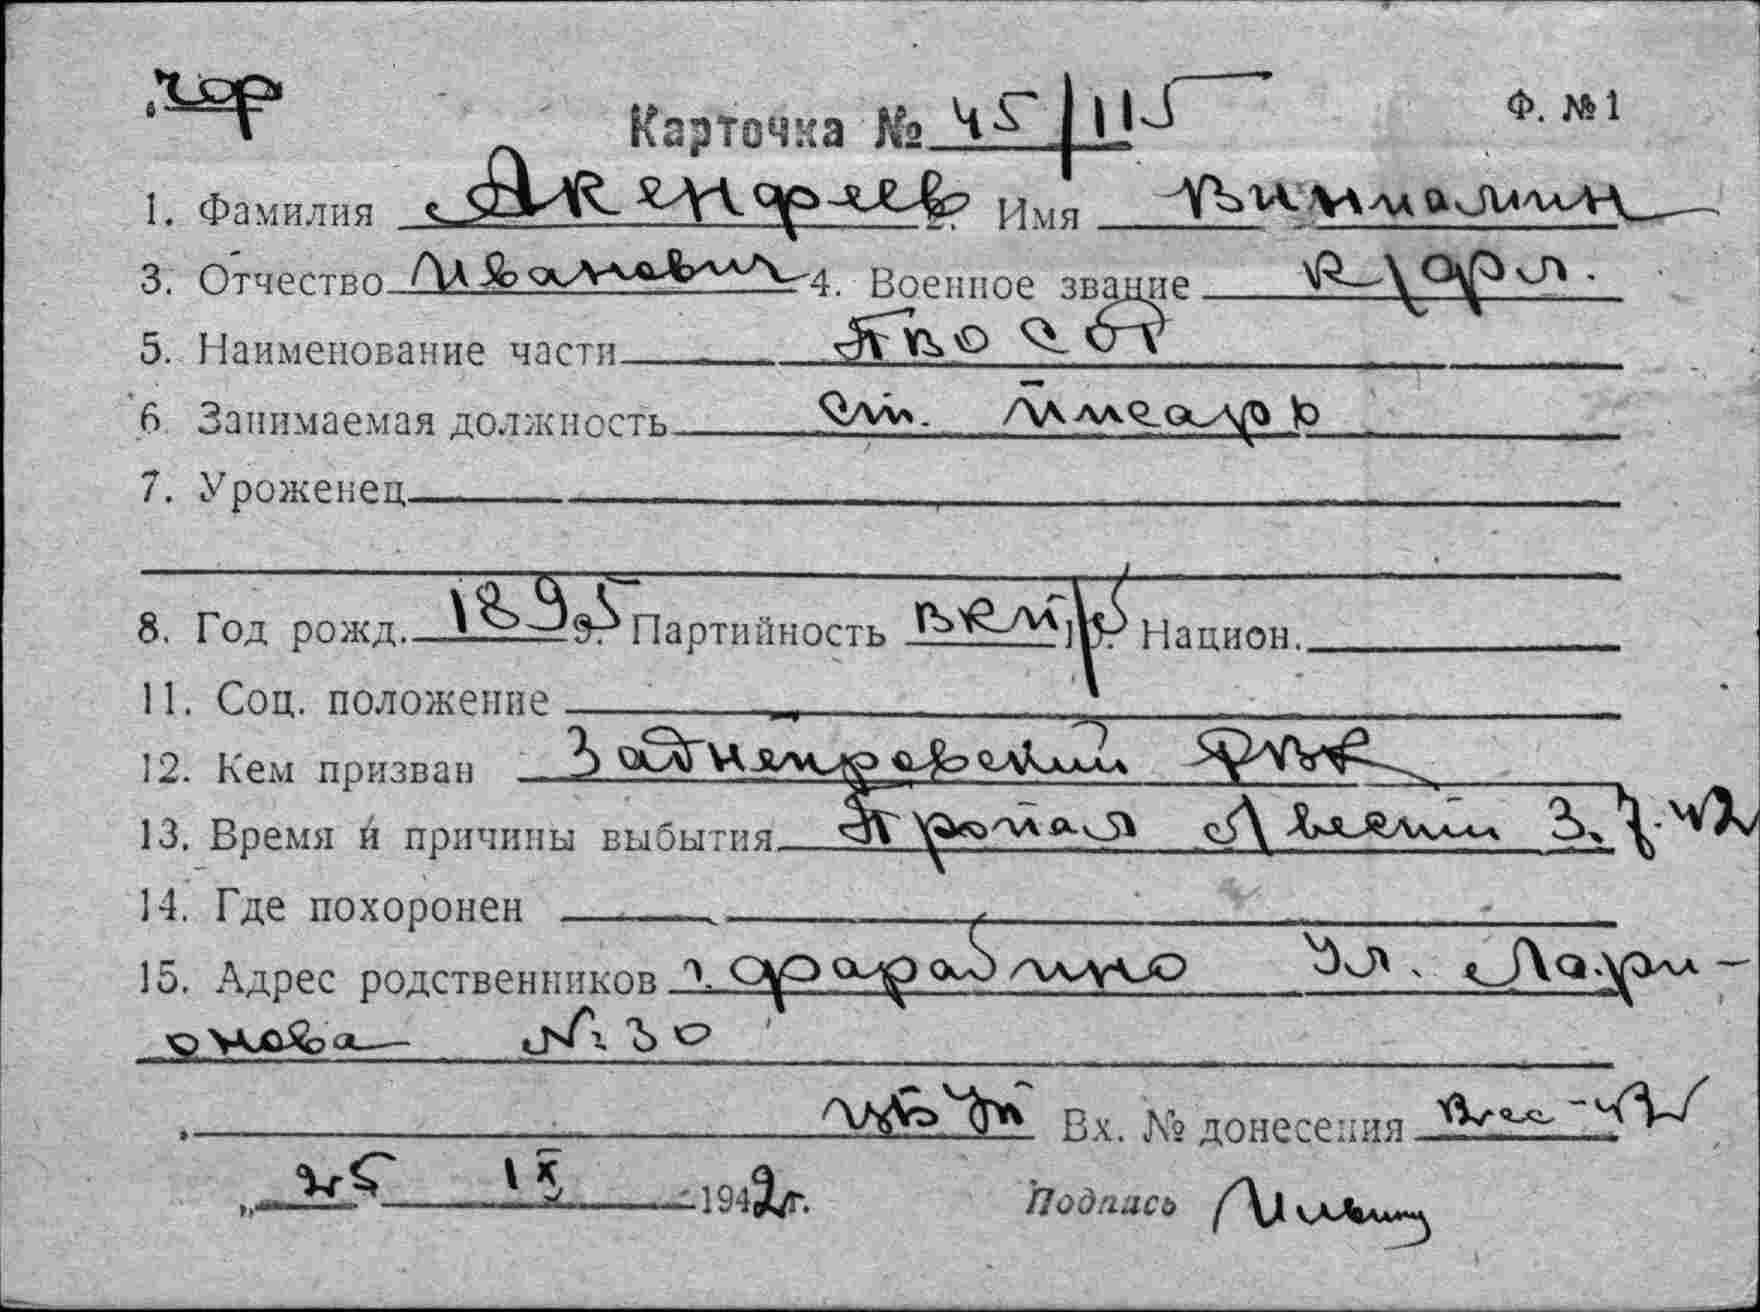 чор
Карточка № 45/115 Ф. № 1
1. Фамилия Акенфеев 2. Имя Виниамин
3. Отчество Иванович 4. Военное звание к/арм.
5. Наименование части
6. Занимаемая должность ст. писарь
7. Уроженец
8. Год рожд. 1895 9. Партийность вкп/б 10. Национ.
11. Соц. положение
12. Кем призван Заднепровский РВК
13. Время и причины выбытия Пропал Лвести 3.7.42
14. Где похоронен
15. Адрес родственников г. фарабино Ул. Лари-
онова № 30
Вх. № донесения
„25 IX 1942г. Подпись